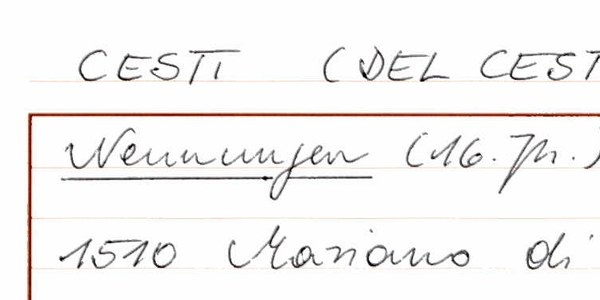 CESTI (DEL CEST
Nennungen (16. Jh.)
1510 Mariano di